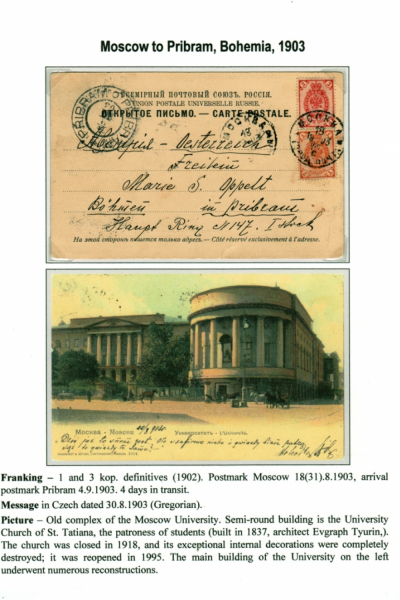 Moscow to Pribram, Bohemia, 1903
ВСЕМІРНЫЙ ПОЧТОВЫЙ СОЮЗЪ. РОССІЯ.
UNION POSTALE UNIVERSELLE RUSSIE.
ОТКРЫТОЕ ПИСЬМО. — CARTE POSTALE.
Oesterreich
Freilein
Marie S. Oppelt
Böhmen in Pribram
Haupt Ring № 147. I stock
На этой сторонѣ пишется только адресъ. — Côté réservé exclusivement à l'adresse.
Москва - Moscou Университетъ - L'Université.
Franking – 1 and 3 kop. definitives (1902). Postmark Moscow 18(31).8.1903, arrival
postmark Pribram 4.9.1903. 4 days in transit.
Message in Czech dated 30.8.1903 (Gregorian).
Picture – Old complex of the Moscow University. Semi-round building is the University
Church of St. Tatiana, the patroness of students (built in 1837, architect Evgraph Tyurin,).
The church was closed in 1918, and its exceptional internal decorations were completely
destroyed; it was reopened in 1995. The main building of the University on the left
underwent numerous reconstructions.